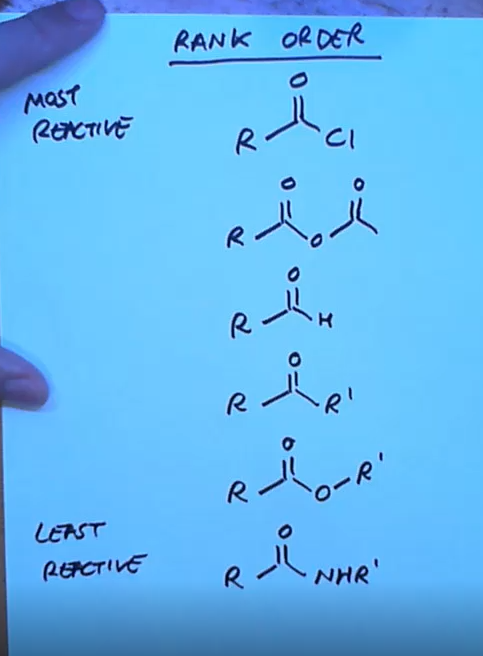 RANK ORDER
MOST
REACTIVE
O
R Cl
O O
R O
O
R H
O
R R'
O
R O R'
LEAST
REACTIVE
O
R NHR'